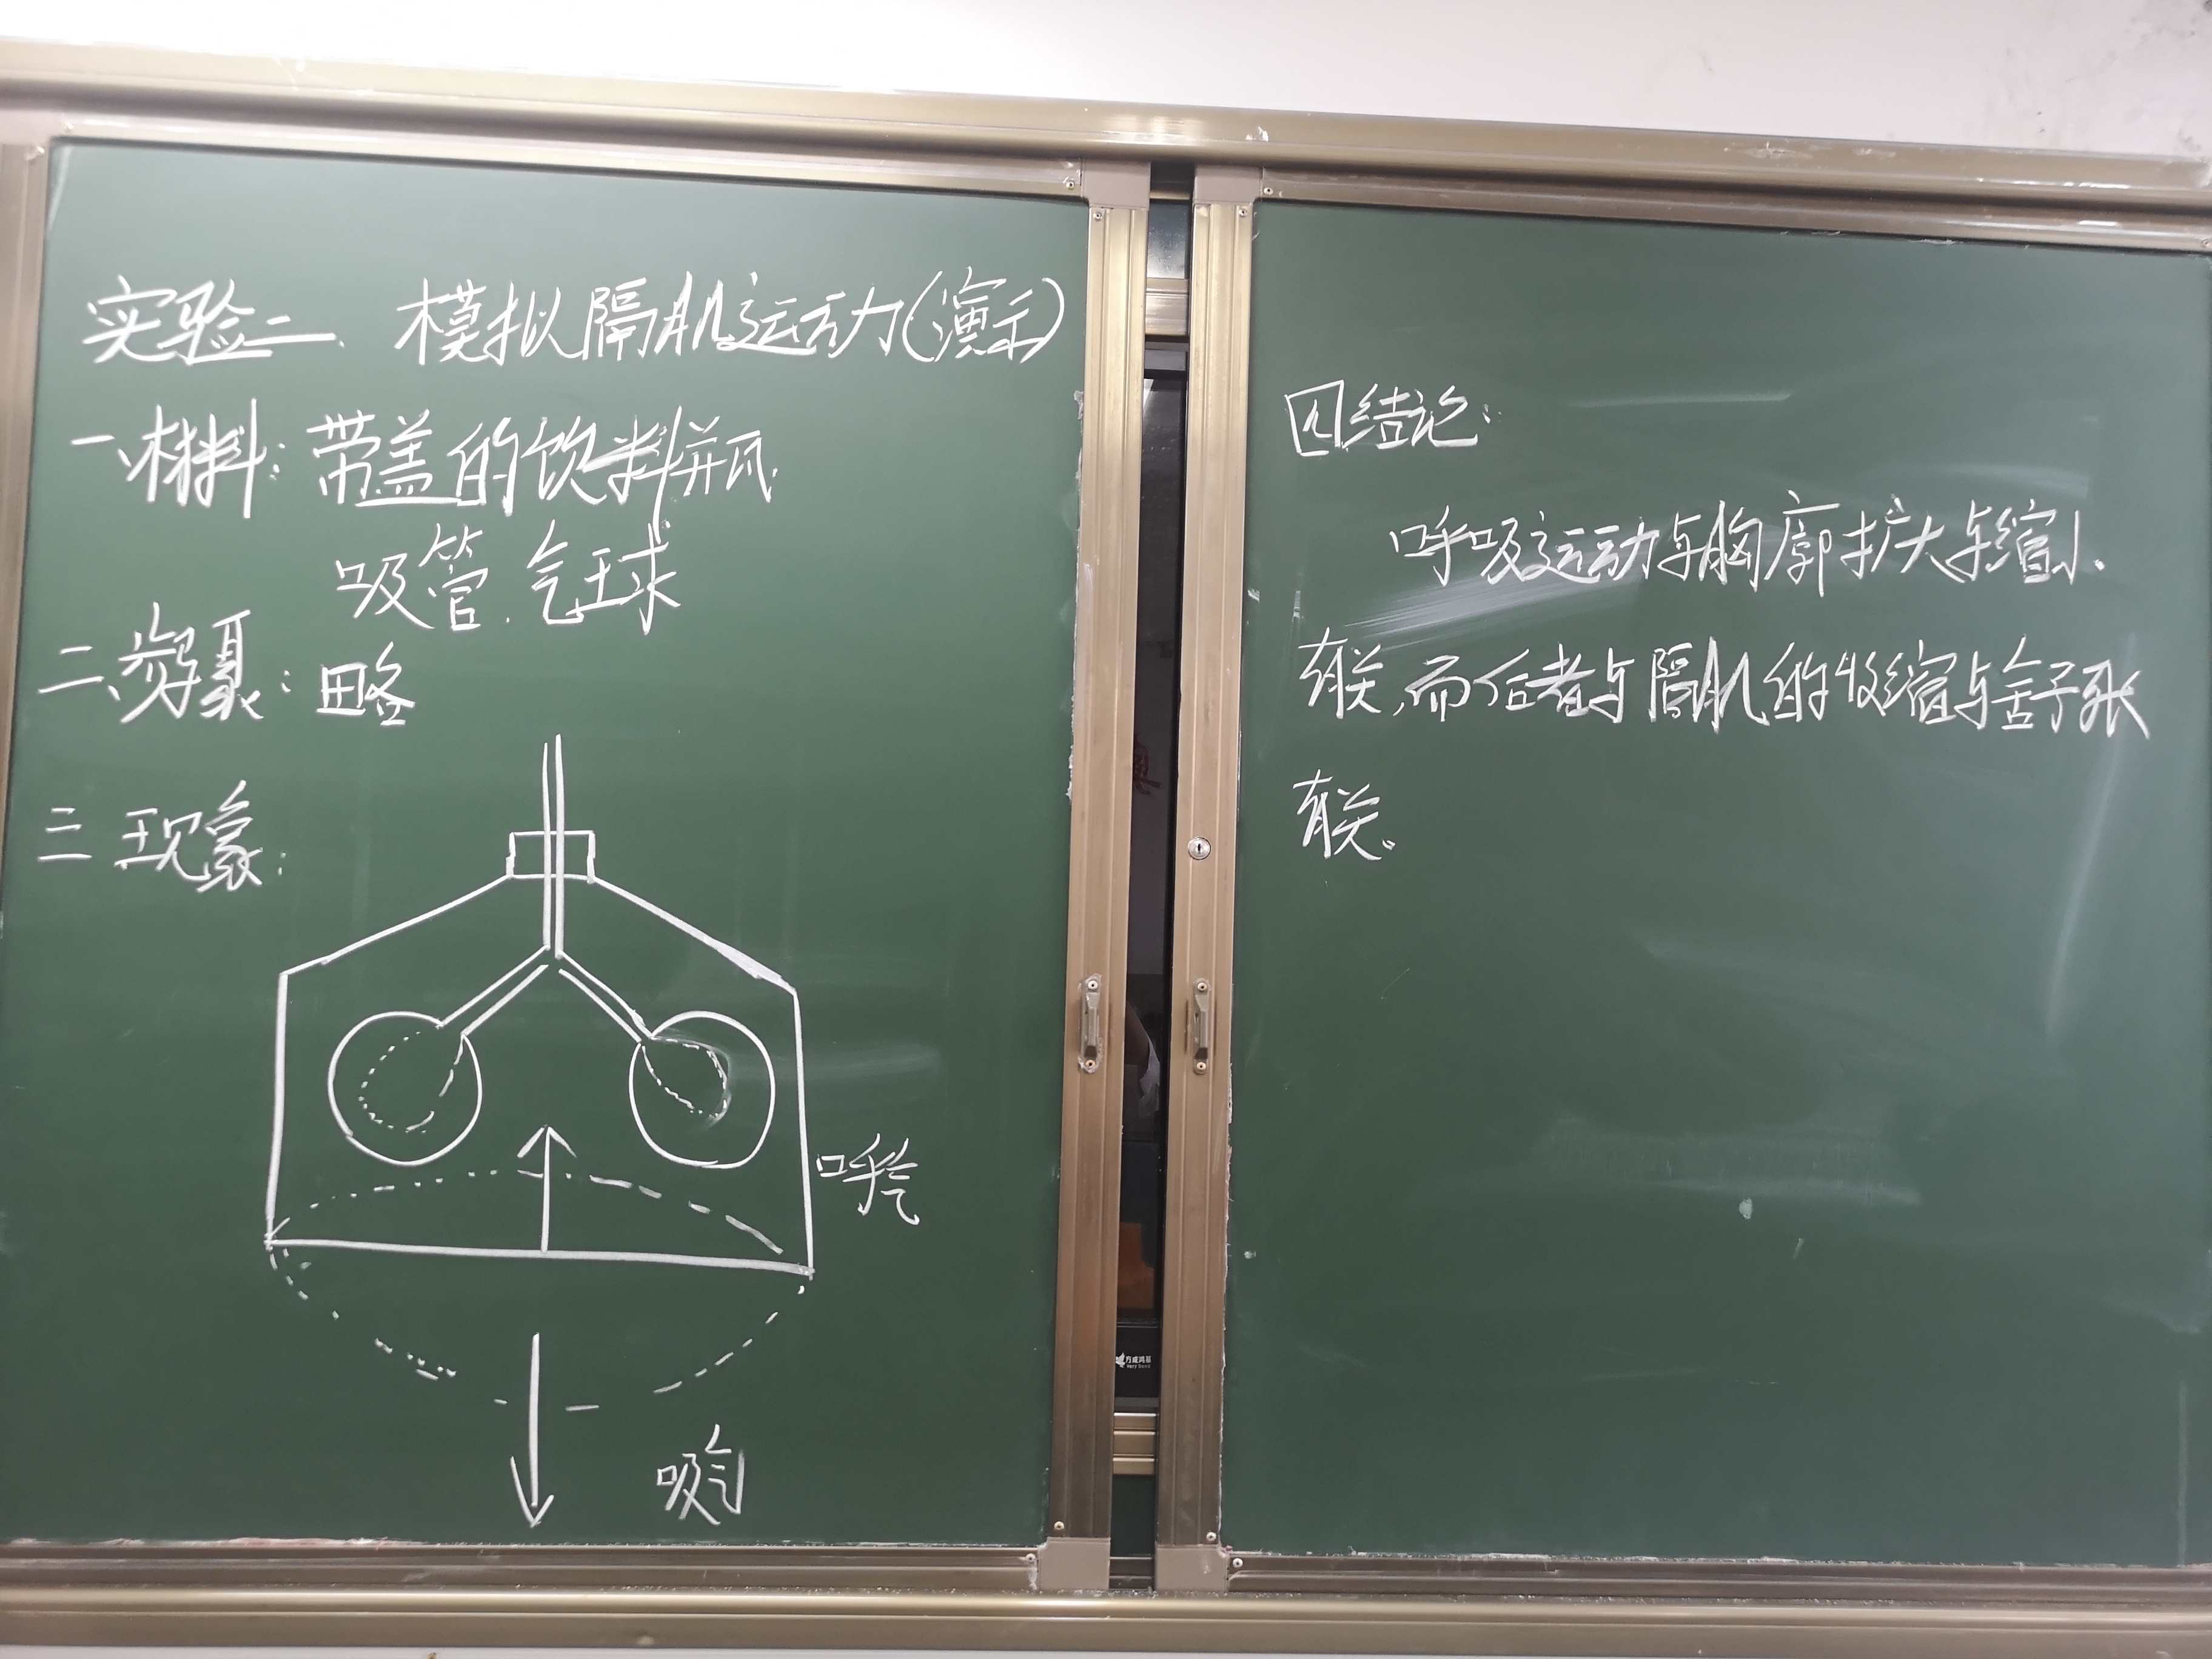 实验二、模拟膈肌运动(演示)
一、材料：带盖的饮料瓶
吸管、气球
二、步骤：略
三 现象：
呼气
吸气
四结论：
呼吸运动与胸廓扩大与缩小
有关,而后者与膈肌的收缩与舒张
有关。